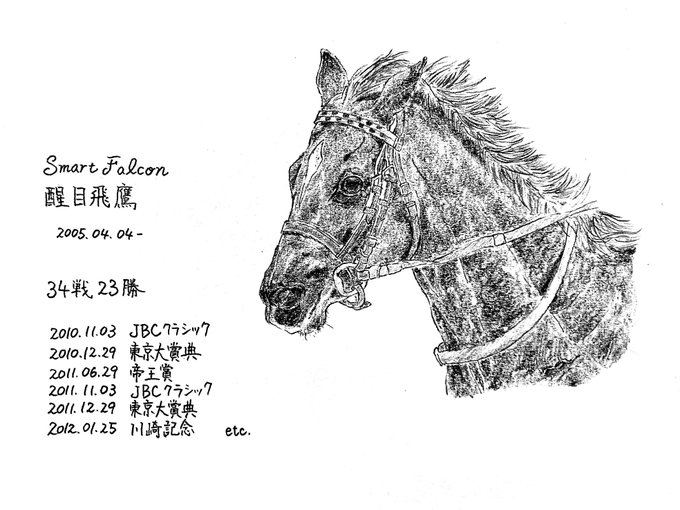 Smart Falcon
醒目飛鷹
2005.04.04-
34戦23勝
2010.11.03 JBCクラシック
2010.12.29 東京大賞典
2011.06.29 帝王賞
2011.11.03 JBCクラシック
2011.12.29 東京大賞典
2012.01.25 川崎記念 etc.